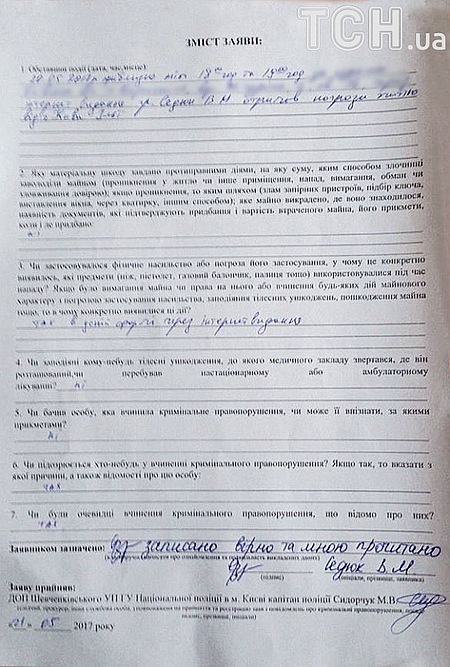 ТСН.ua
ЗМІСТ ЗАЯВИ:
1. Обставини події (дата, час, місце):
20.05.2017р приблизно між 18⁰⁰ год та 19⁰⁰ год
інтернет видання гр. Седюк В М отримав погрози
від
2. Яку матеріальну шкоду завдано протиправними діями, на яку суму, яким способом злочинці
заволоділи майном (проникнення у житло чи інше приміщення, напад, вимагання, обман чи
зловживання довірою); якщо проникнення, то яким шляхом (злам запірних пристроїв, підбір ключа,
виставлення вікна, через кватирку, іншим способом); яке майно викрадено, де воно знаходилося,
наявність документів, які підтверджують придбання і вартість втраченого майна, його прикмети,
коли і де придбано:
ні
3. Чи застосовувалося фізичне насильство або погроза його застосування, у чому це конкретно
виявилось, які предмети (ніж, пістолет, газовий балончик, палиця тощо) використовувалися під час
нападу? Якщо було вимагання майна чи права на нього або вчинення будь-яких дій майнового
характеру і погрозою застосування насильства, заподіяння тілесних ушкоджень, пошкодження майна
тощо, то в чому конкретно виявилися ці дії?
так в усній формі через інтернет видання
4. Чи заподіяні кому-небудь тілесні ушкодження, до якого медичного закладу звертався, де він
розташований, чи перебував на стаціонарному або амбулаторному
лікуванні? ні
5. Чи бачив особу, яка вчинила кримінальне правопорушення, чи може її впізнати, за якими
прикметами?
ні
6. Чи підозрюється хто-небудь у вчиненні кримінального правопорушення? Якщо так, то вказати з
якої причини, а також відомості про цю особу:
так
7. Чи були очевидці вчинення кримінального правопорушення, що відомо про них?
так
Заявником зазначено: записано вірно та мною прочитано
(підпис) Седюк В.М
(ініціали, прізвище, заявника)
Заяву прийняв:
ДОП Шевченківського УП ГУ Національної поліції в м. Києві капітан поліції Сидорчук М.В.
«21» 05 2017 року